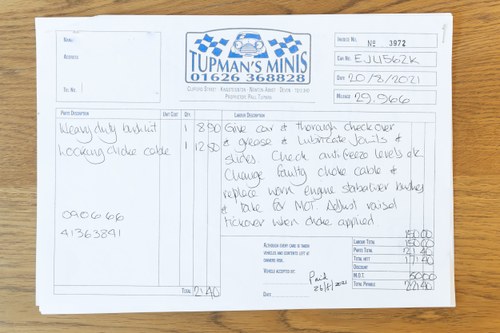 Name:
Address
Tel. No.
TUPMAN'S MINIS
01626 368828
Proprietor Paul Tupman
Invoice No. No 3972
Car No. EJU562K
Date 20/8/2021
Mileage 29,966
Parts Description Unit Cost Qty.
Heavy duty bush kit 1 8.90
Locking choke cable 1 12.50
090666
41363841
Total 21.40
Labour Description
Give car a thorough check over
& grease & lubricate joints &
slides. Check anti-freeze levels etc.
Change faulty choke cable &
replace worn engine stabaliser bushes
& take for MOT. Adjust raised
tickover when choke applied.
150.00
Although every care is taken
vehicles and contents left at
owners risk.
Vehicle accepted by:
Paid
Date
Labour Total 150.00
Parts Total 21.40
Total nett 171.40
Discount
M.O.T. 50.00
Total Payable 221.40